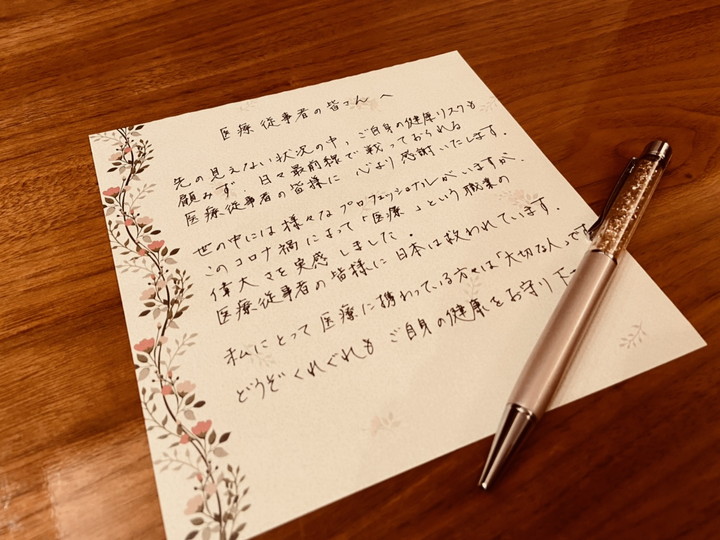 医療従事者の皆さんへ
先の見えない状況の中、ご自身の健康リスクも
顧みず、日々最前線で戦っておられる
医療従事者の皆様に 心より感謝いたします。
世の中には様々なプロフェッショナルがいますが、
このコロナ禍によって「医療」という職業の
偉大さを実感しました。
医療従事者の皆様に日本は救われています。
私にとって医療に携わっている方々は「大切な人」です
どうぞくれぐれもご自身の健康をお守り下